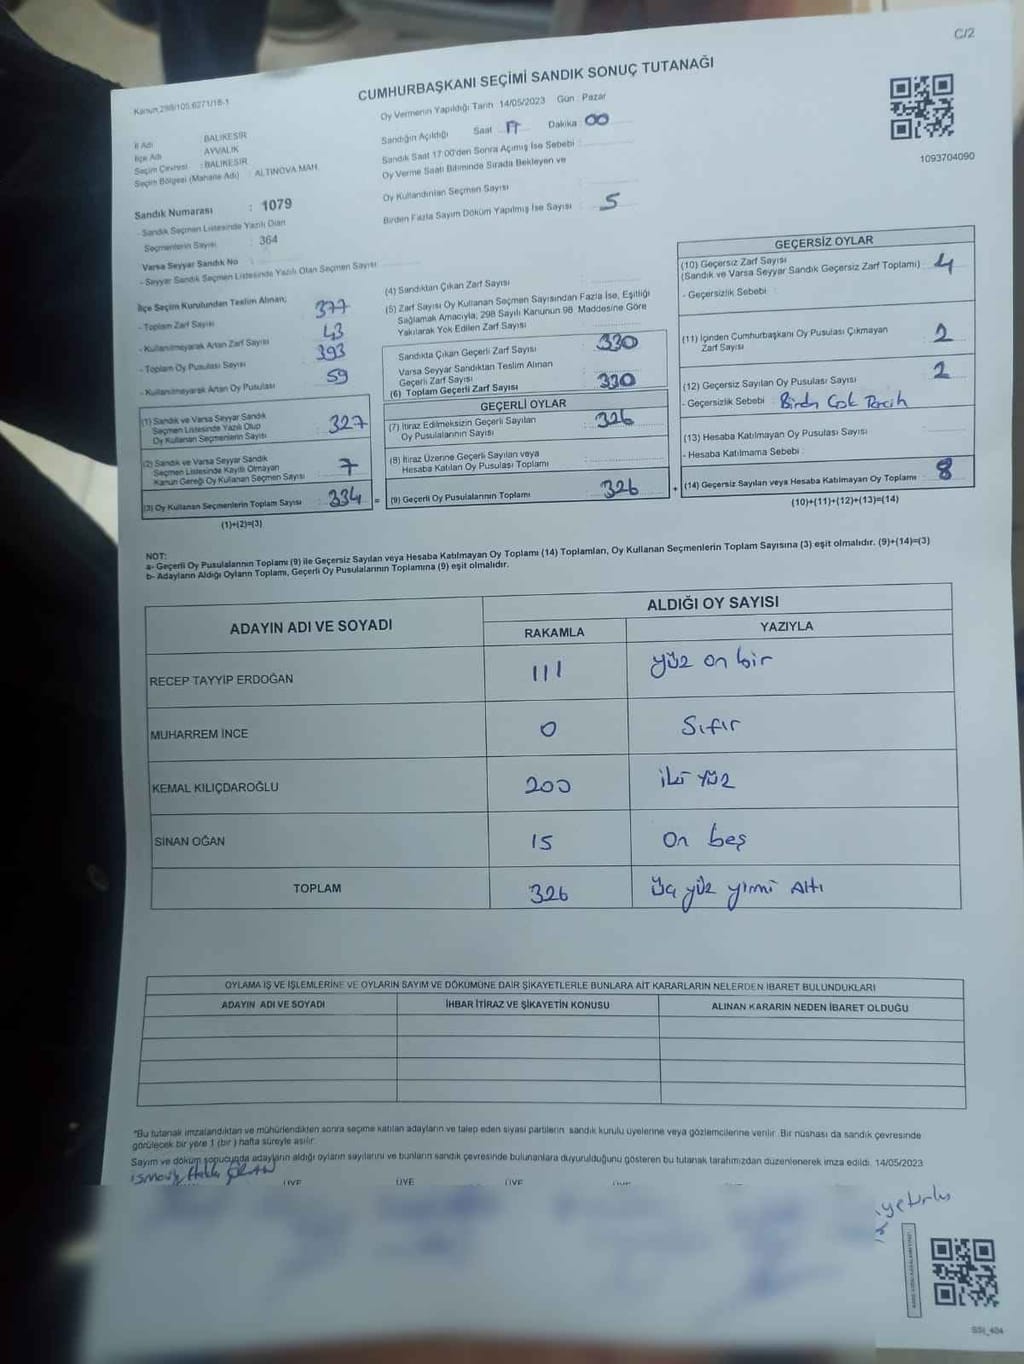 C/2
Kanun 298/105,6271/18-1
CUMHURBAŞKANI SEÇİMİ SANDIK SONUÇ TUTANAĞI
Oy Vermenin Yapıldığı Tarih 14/05/2023 Gün : Pazar
Sandığın Açıldığı Saat 17 Dakika 00
Sandık Saat 17:00'den Sonra Açımış İse Sebebi :
Oy Verme Saati Bitiminde Sırada Bekleyen ve
Oy Kullandırılan Seçmen Sayısı
Birden Fazla Sayım Döküm Yapılmış İse Sayısı : 5
1093704090
İl Adı : BALIKESİR
İlçe Adı : AYVALIK
Seçim Çevresi : BALIKESİR
Seçim Bölgesi (Mahalle Adı) : ALTINOVA MAH.
Sandık Numarası : 1079
- Sandık Seçmen Listesinde Yazılı Olan
Seçmenlerin Sayısı : 364
Varsa Seyyar Sandık No :
- Seyyar Sandık Seçmen Listesinde Yazılı Olan Seçmen Sayısı
İlçe Seçim Kurulundan Teslim Alınan;
- Toplam Zarf Sayısı 377
- Kullanılmayarak Artan Zarf Sayısı 43
- Toplam Oy Pusulası Sayısı 393
- Kullanılmayarak Artan Oy Pusulası 59
(1) Sandık ve Varsa Seyyar Sandık
Seçmen Listesinde Yazılı Olup
Oy Kullanan Seçmenlerin Sayısı 327
(2) Sandık ve Varsa Seyyar Sandık
Seçmen Listesinde Kayıtlı Olmayan
Kanun Gereği Oy Kullanan Seçmen Sayısı 7
(3) Oy Kullanan Seçmenlerin Toplam Sayısı : 334 =
(1)+(2)=(3)
(4) Sandıktan Çıkan Zarf Sayısı
(5) Zarf Sayısı Oy Kullanan Seçmen Sayısından Fazla İse, Eşitliği
Sağlamak Amacıyla, 298 Sayılı Kanunun 98. Maddesine Göre
Yakılarak Yok Edilen Zarf Sayısı
Sandıkta Çıkan Geçerli Zarf Sayısı 330
Varsa Seyyar Sandıktan Teslim Alınan
Geçerli Zarf Sayısı
(6) Toplam Geçerli Zarf Sayısı 330
GEÇERLİ OYLAR
(7) İtiraz Edilmeksizin Geçerli Sayılan
Oy Pusulalarının Sayısı 326
(8) İtiraz Üzerine Geçerli Sayılan veya
Hesaba Katılan Oy Pusulası Toplamı
(9) Geçerli Oy Pusulalarının Toplamı : 326 +
GEÇERSİZ OYLAR
(10) Geçersiz Zarf Sayısı
(Sandık ve Varsa Seyyar Sandık Geçersiz Zarf Toplamı) 4
- Geçersizlik Sebebi :
(11) İçinden Cumhurbaşkanı Oy Pusulası Çıkmayan
Zarf Sayısı 2
(12) Geçersiz Sayılan Oy Pusulası Sayısı 2
- Geçersizlik Sebebi : Birden Çok Tercih
(13) Hesaba Katılmayan Oy Pusulası Sayısı
- Hesaba Katılmama Sebebi :
(14) Geçersiz Sayılan veya Hesaba Katılmayan Oy Toplamı : 8
(10)+(11)+(12)+(13)=(14)
NOT:
a- Geçerli Oy Pusulalarının Toplamı (9) ile Geçersiz Sayılan veya Hesaba Katılmayan Oy Toplamı (14) Toplamları, Oy Kullanan Seçmenlerin Toplam Sayısına (3) eşit olmalıdır. (9)+(14)=(3)
b- Adayların Aldığı Oyların Toplamı, Geçerli Oy Pusulalarının Toplamına (9) eşit olmalıdır.
ADAYIN ADI VE SOYADI
ALDIĞI OY SAYISI
RAKAMLA YAZIYLA
RECEP TAYYİP ERDOĞAN 111 yüz on bir
MUHARREM İNCE 0 Sıfır
KEMAL KILIÇDAROĞLU 200 iki yüz
SİNAN OĞAN 15 On beş
TOPLAM 326 Üç yüz yirmi Altı
OYLAMA İŞ VE İŞLEMLERİNE VE OYLARIN SAYIM VE DÖKÜMÜNE DAİR ŞİKAYETLERLE BUNLARA AİT KARARLARIN NELERDEN İBARET BULUNDUKLARI
ADAYIN ADI VE SOYADI İHBAR İTİRAZ VE ŞİKAYETİN KONUSU ALINAN KARARIN NEDEN İBARET OLDUĞU
*Bu tutanak imzalandıktan ve mühürlendikten sonra seçime katılan adayların ve talep eden siyasi partilerin sandık kurulu üyelerine veya gözlemcilerine verilir. Bir nüshası da sandık çevresinde
görülecek bir yere 1 (bir) hafta süreyle asılır.
Sayım ve döküm sonucunda adayların aldığı oyların sayılarını ve bunların sandık çevresinde bulunanlara duyurulduğunu gösteren bu tutanak tarafımızdan düzenlenerek imza edildi. 14/05/2023
ÜYE ÜYE ÜYE